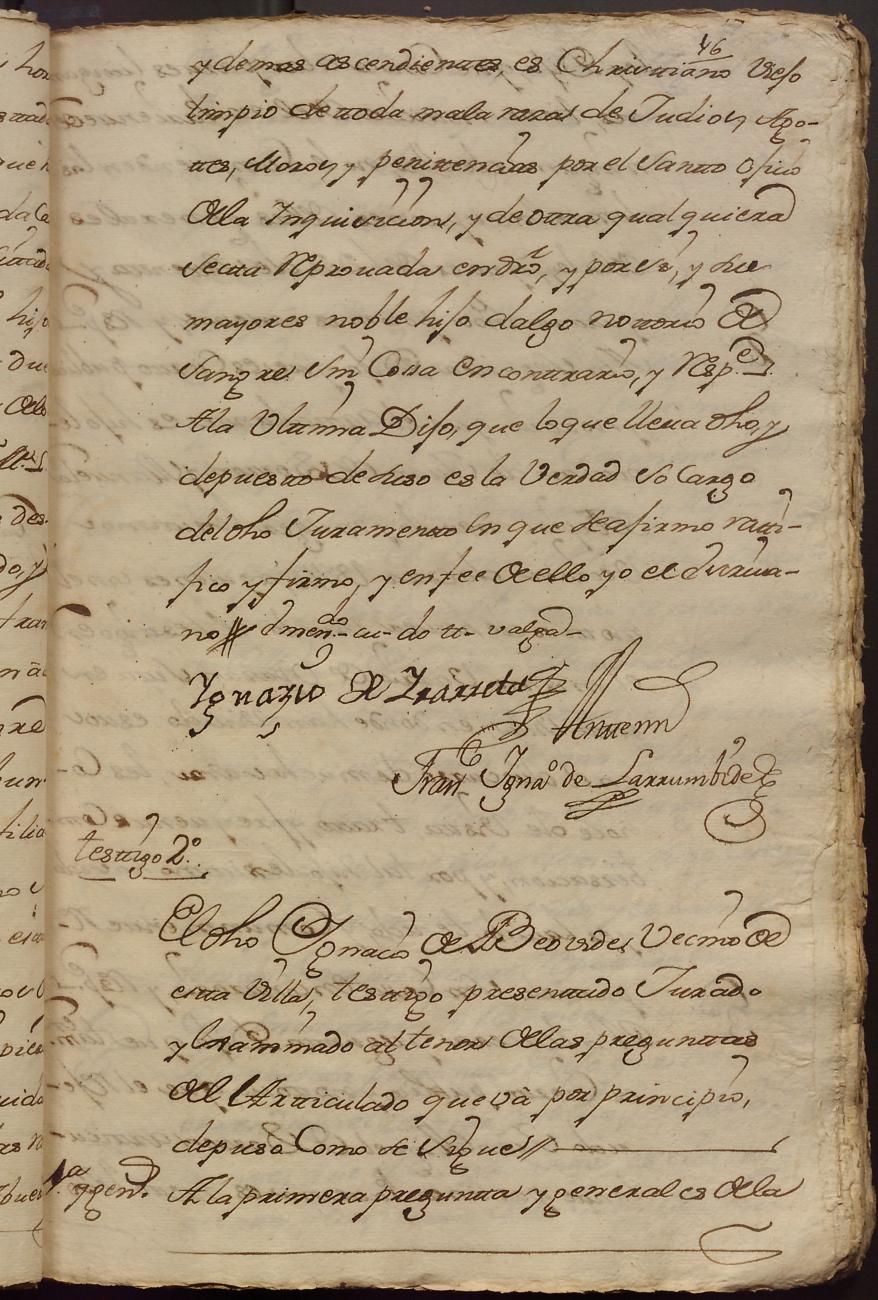 46
y demas ascendientes, es Christiano Viejo
limpio de ttoda mala raza de Judios, Ago-
ttes, Moros, y penitenciados por el Santto Oficio
de la Inquisicion, y de ottra qual quiera
Sectta Reprovada en dro, y por si, y sus
mayores noble hijo dalgo nottorio de
Sangre sin Cosa en conttrario, y Resp.de
A la Ultima Dijo, que lo que lleva dho, y
depuestto de suso es la Verdad So Cargo
del dho Juramentto en que se afirmo ratti-
fico y firmo, y en fee de ello yo el escriva-
no // valga
Ygnazio de Yrarreta
Antte mi
Fran.co Ygna.o de Larrumbide
testtigo 2.o
El dho Ygnacio de Beovides Vecino de
estta Villa, testtigo presenttado Jurado
y examinado al tenor de las pregunttas
del Artticulado que và por principio,
depuso Como se Sigue //
1.a y gen.s A la primera preguntta y generales de la